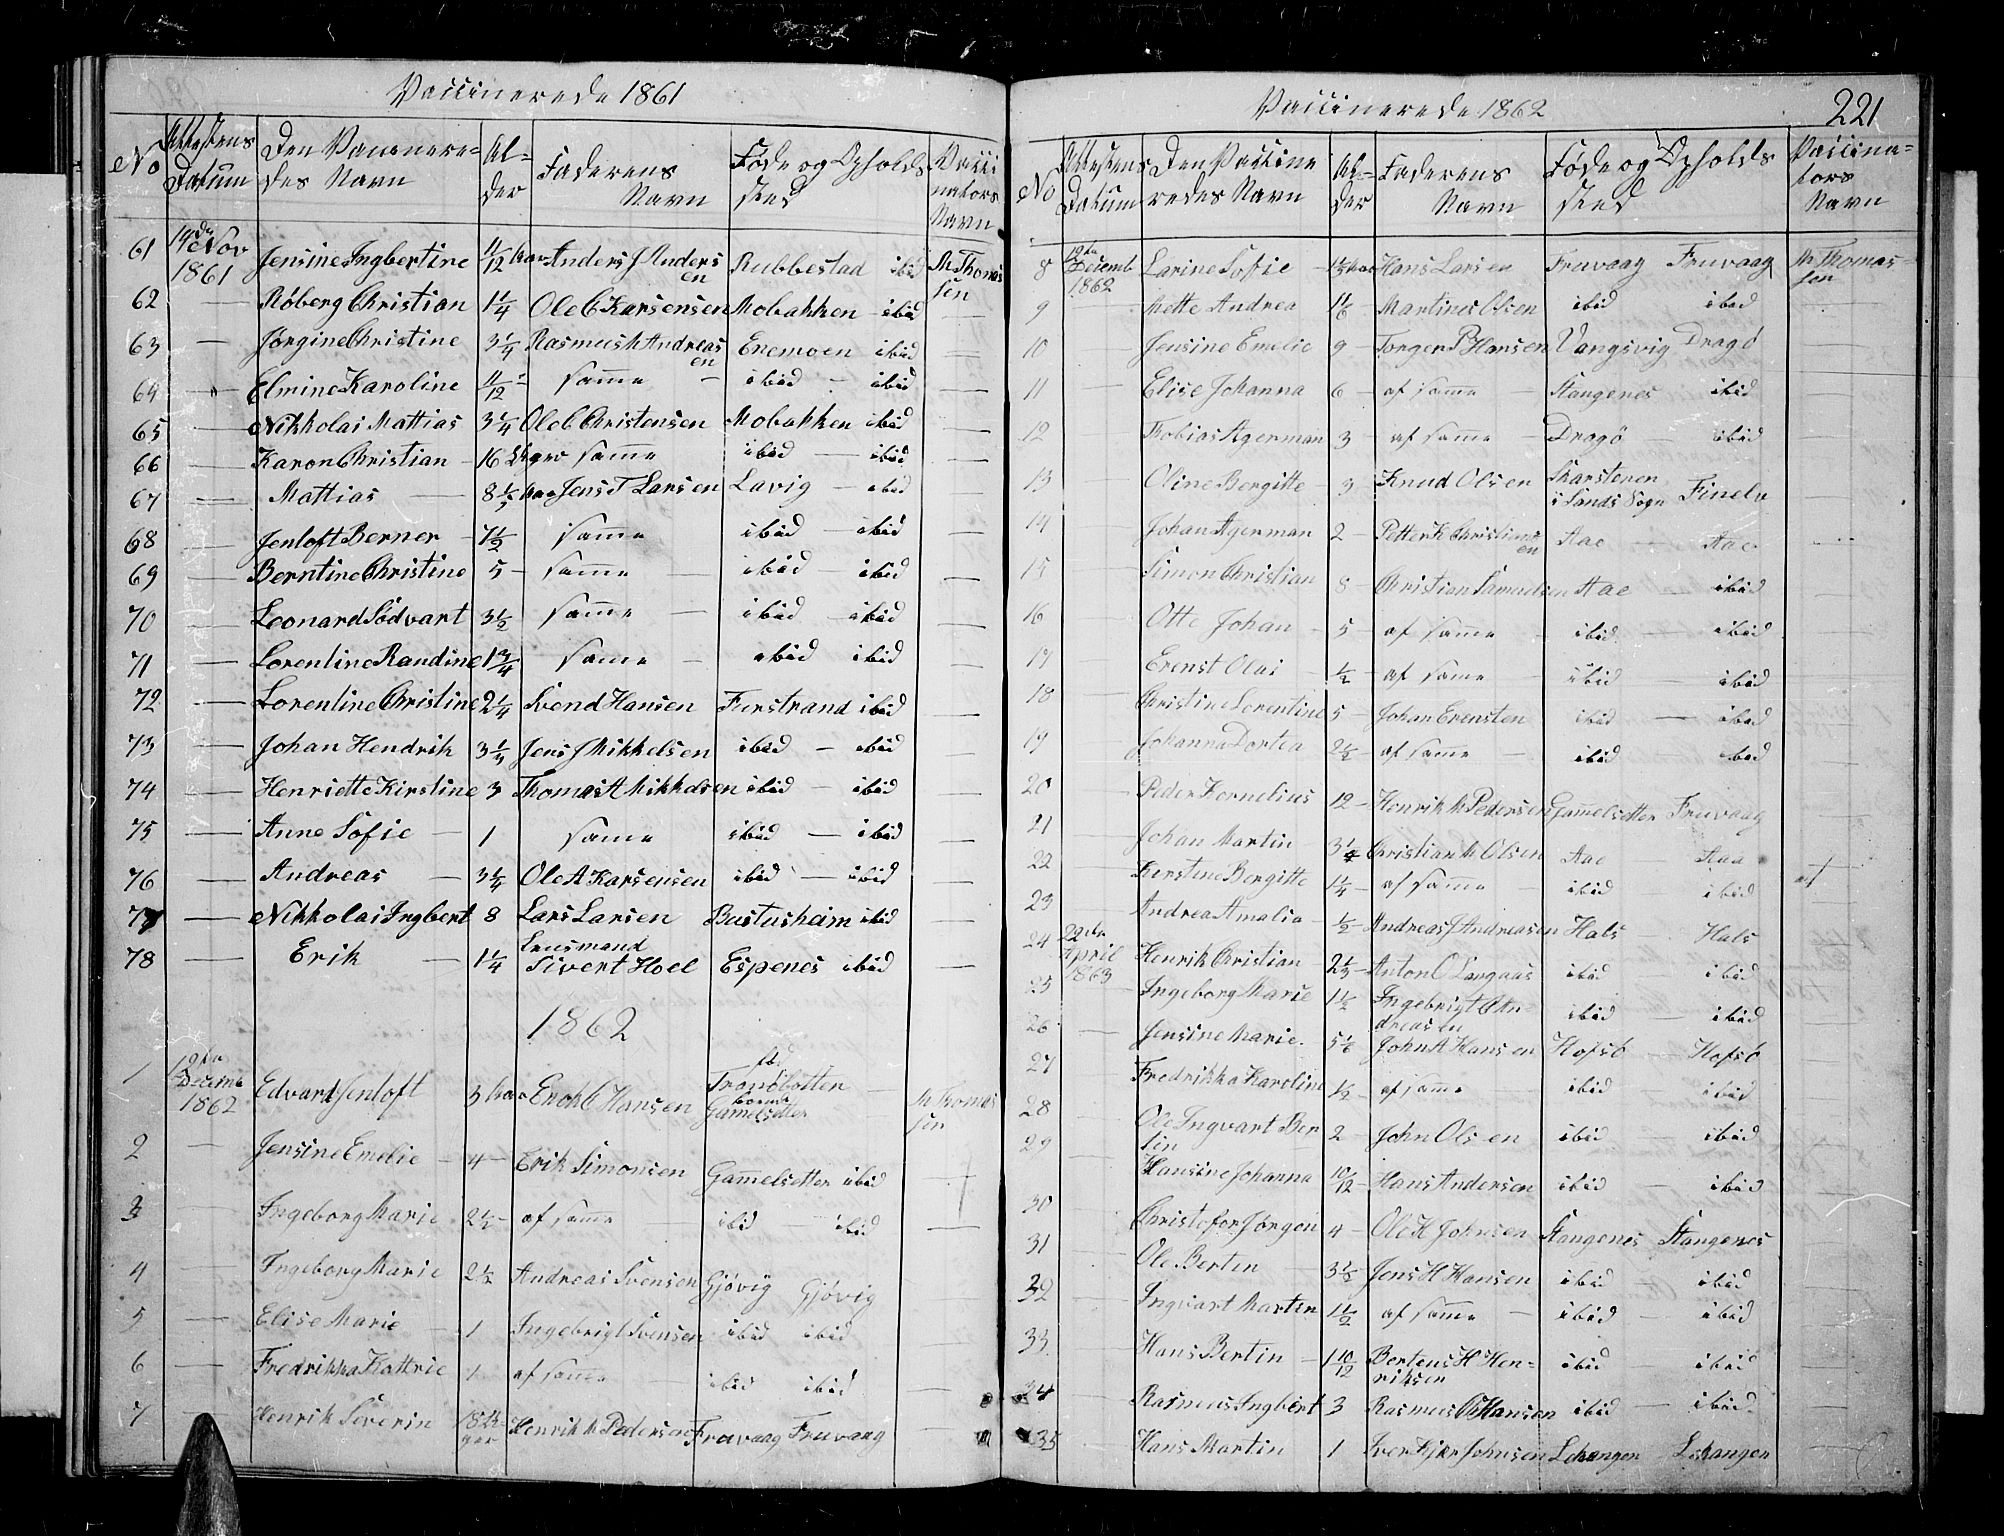 Vaccinerede 1861
No Attestens Datum Den Vaccinere-des Navn Al-der Faderens Navn Føde og Opholds sted Vacci nators Navn
61 14de Nov 1861 Jensine Ingbertine 11/12 Aar Anders J Andersen Rubbestad ibid M Thomassen
62 — Røberg Christian 1 1/4 Ole C Karsensen Mobakken — ibid —
63 — Jørgine Christine 3 1/4 Rasmus M Andreasen Enemoen ibid —
64 — Elmine Karoline 11/12 — samme — ibid — ibid —
65 — Nikkolai Mattias 3 1/4 Ole C Christensen Mobakken ibid —
66 — Karon Christian — 16 Uger samme ibid — ibid —
67 — Mattias — 8 1/2 Aar Jens T Larsen Lavig — ibid —
68 — Jenloft Berner — 7 1/2 samme ibid — ibid —
69 — Berntine Christine 5 — samme — ibid ibid —
70 — Leonard Sødvart 3 1/2 samme — ibid — ibid —
71 — Lorentine Randine 1 3/4 samme — ibid ibid —
72 — Lorentine Christine 2 1/4 Svend Hansen Furstrand ibid —
73 — Johan Hendrik 3 1/4 Jens J Mikkelsen ibid — ibid —
74 — Henriette Kirstine 3 Thomas A Mikkelsen ibid — ibid —
75 — Anne Sofie — 1 samme ibid — ibid —
76 — Andreas — 3 1/4 Ole A Karsensen ibid — ibid —
77 — Nikkolai Ingbert 8 Lars Larsen Bustusheim ibid —
78 — Erik — 1 1/4 Lensmand Sivert Hoel Espenes ibid —
1862
1 12te Decemb 1862 Edvard Jenloft 3 Aar Enok C Hansen fød Tranøbotten boende Gamelsetter M Thomassen
2 — Jensine Emelie — 4 — Erik Simonsen Gammelsetter ibid —
3 — Ingeborg Marie 2 1/2 — af samme — ibid — ibid —
4 — Ingeborg Marie 2 1/2 Andreas Svensen Gjövig Gjövig —
5 — Elise Marie — 1 Ingebrigt Svensen ibid ibid —
6 — Fredrikka Kattrie 1 af samme — ibid ibid —
7 — Henrik Severin 18 Uger Henrik M Pedersen Fruvaag Fruvaag —
Vaccinerede 1862 221
No Attestens Datum Den Vaccine redes Navn Al-der Faderens Navn Føde og Opholds sted Vaccina-tors Navn
8 12te Decemb 1862 Larine Sofie — Hans Larsen Fruvaag Fruvaag M Thomassen
9 — Mette Andrea 11/6 Martinus Olsen ibid ibid —
10 — Jensine Emelie 9 — Torger P Hansen Vangsvig Dragö —
11 — Elise Johanna 6 — af samme — Stangenes ibid —
12 — Tobias Agerman 3 — af samme — Dragö ibid —
13 — Oline Bergitte — 3 Knud Olsen Skarstenen i Sands Sogn Finelv —
14 — Johan Agerman 2 — Petter K Christiansen Aae — Aae —
15 — Simon Christian 8 — Christian Samuelsen Aae — ibid —
16 — Otte Johan — 5 — af samme — ibid — ibid
17 — Erenst Olai — 1/2 — af samme — ibid — ibid
18 — Christine Lorentine 5 — Johan Erensten ibid — ibid
19 — Johanna Dortea 2 1/2 — af samme — ibid ibid
20 — Peder Kornelius 12 — Henrik M Pedersen Gammelsetter Fruvaag
21 — Johan Martin — 3 1/2 Christian M Olsen Aae Aaa
22 — Kirstine Bergitte 1 1/4 — af samme — ibid — ibid
23 — Andrea Amalia — 1/2 — Andreas J Andreasen Hals — Hals
24 22de April 1863 Henrik Christian 2 1/2 — Anton O Langaas ibid — ibid
25 — Ingeborg Marie 1 1/2 Ingebrigt C Andreasen ibid — ibid
26 — Jensine Marie. 5 1/6 John A Hansen Hofsö — Hofsö
27 — Fredrikka Karoline 1/2 — af samme — ibid ibid
28 — Ole Ingvart Bertin 2 — John Olsen ibid — ibid
29 — Hansine Johanna 10/12 — Hans Andersen ibid — ibid
30 — Christofer Jørgen 4 — Ole K Johnsen Stangenes Stangenes
31 — Ole Bertin — 3 1/2 Jens H Hansen ibid — ibid
32 — Ingvart Martin 1 1/2 af samme — ibid — ibid
33 — Hans Bertin — 1 10/12 Bertens H Henriksen ibid — ibid
34 — Rasmus Ingbert 3 Rasmus O Hansen ibid — ibid
35 — Hans Martin 1 Johnsen Lekangen Lekangen